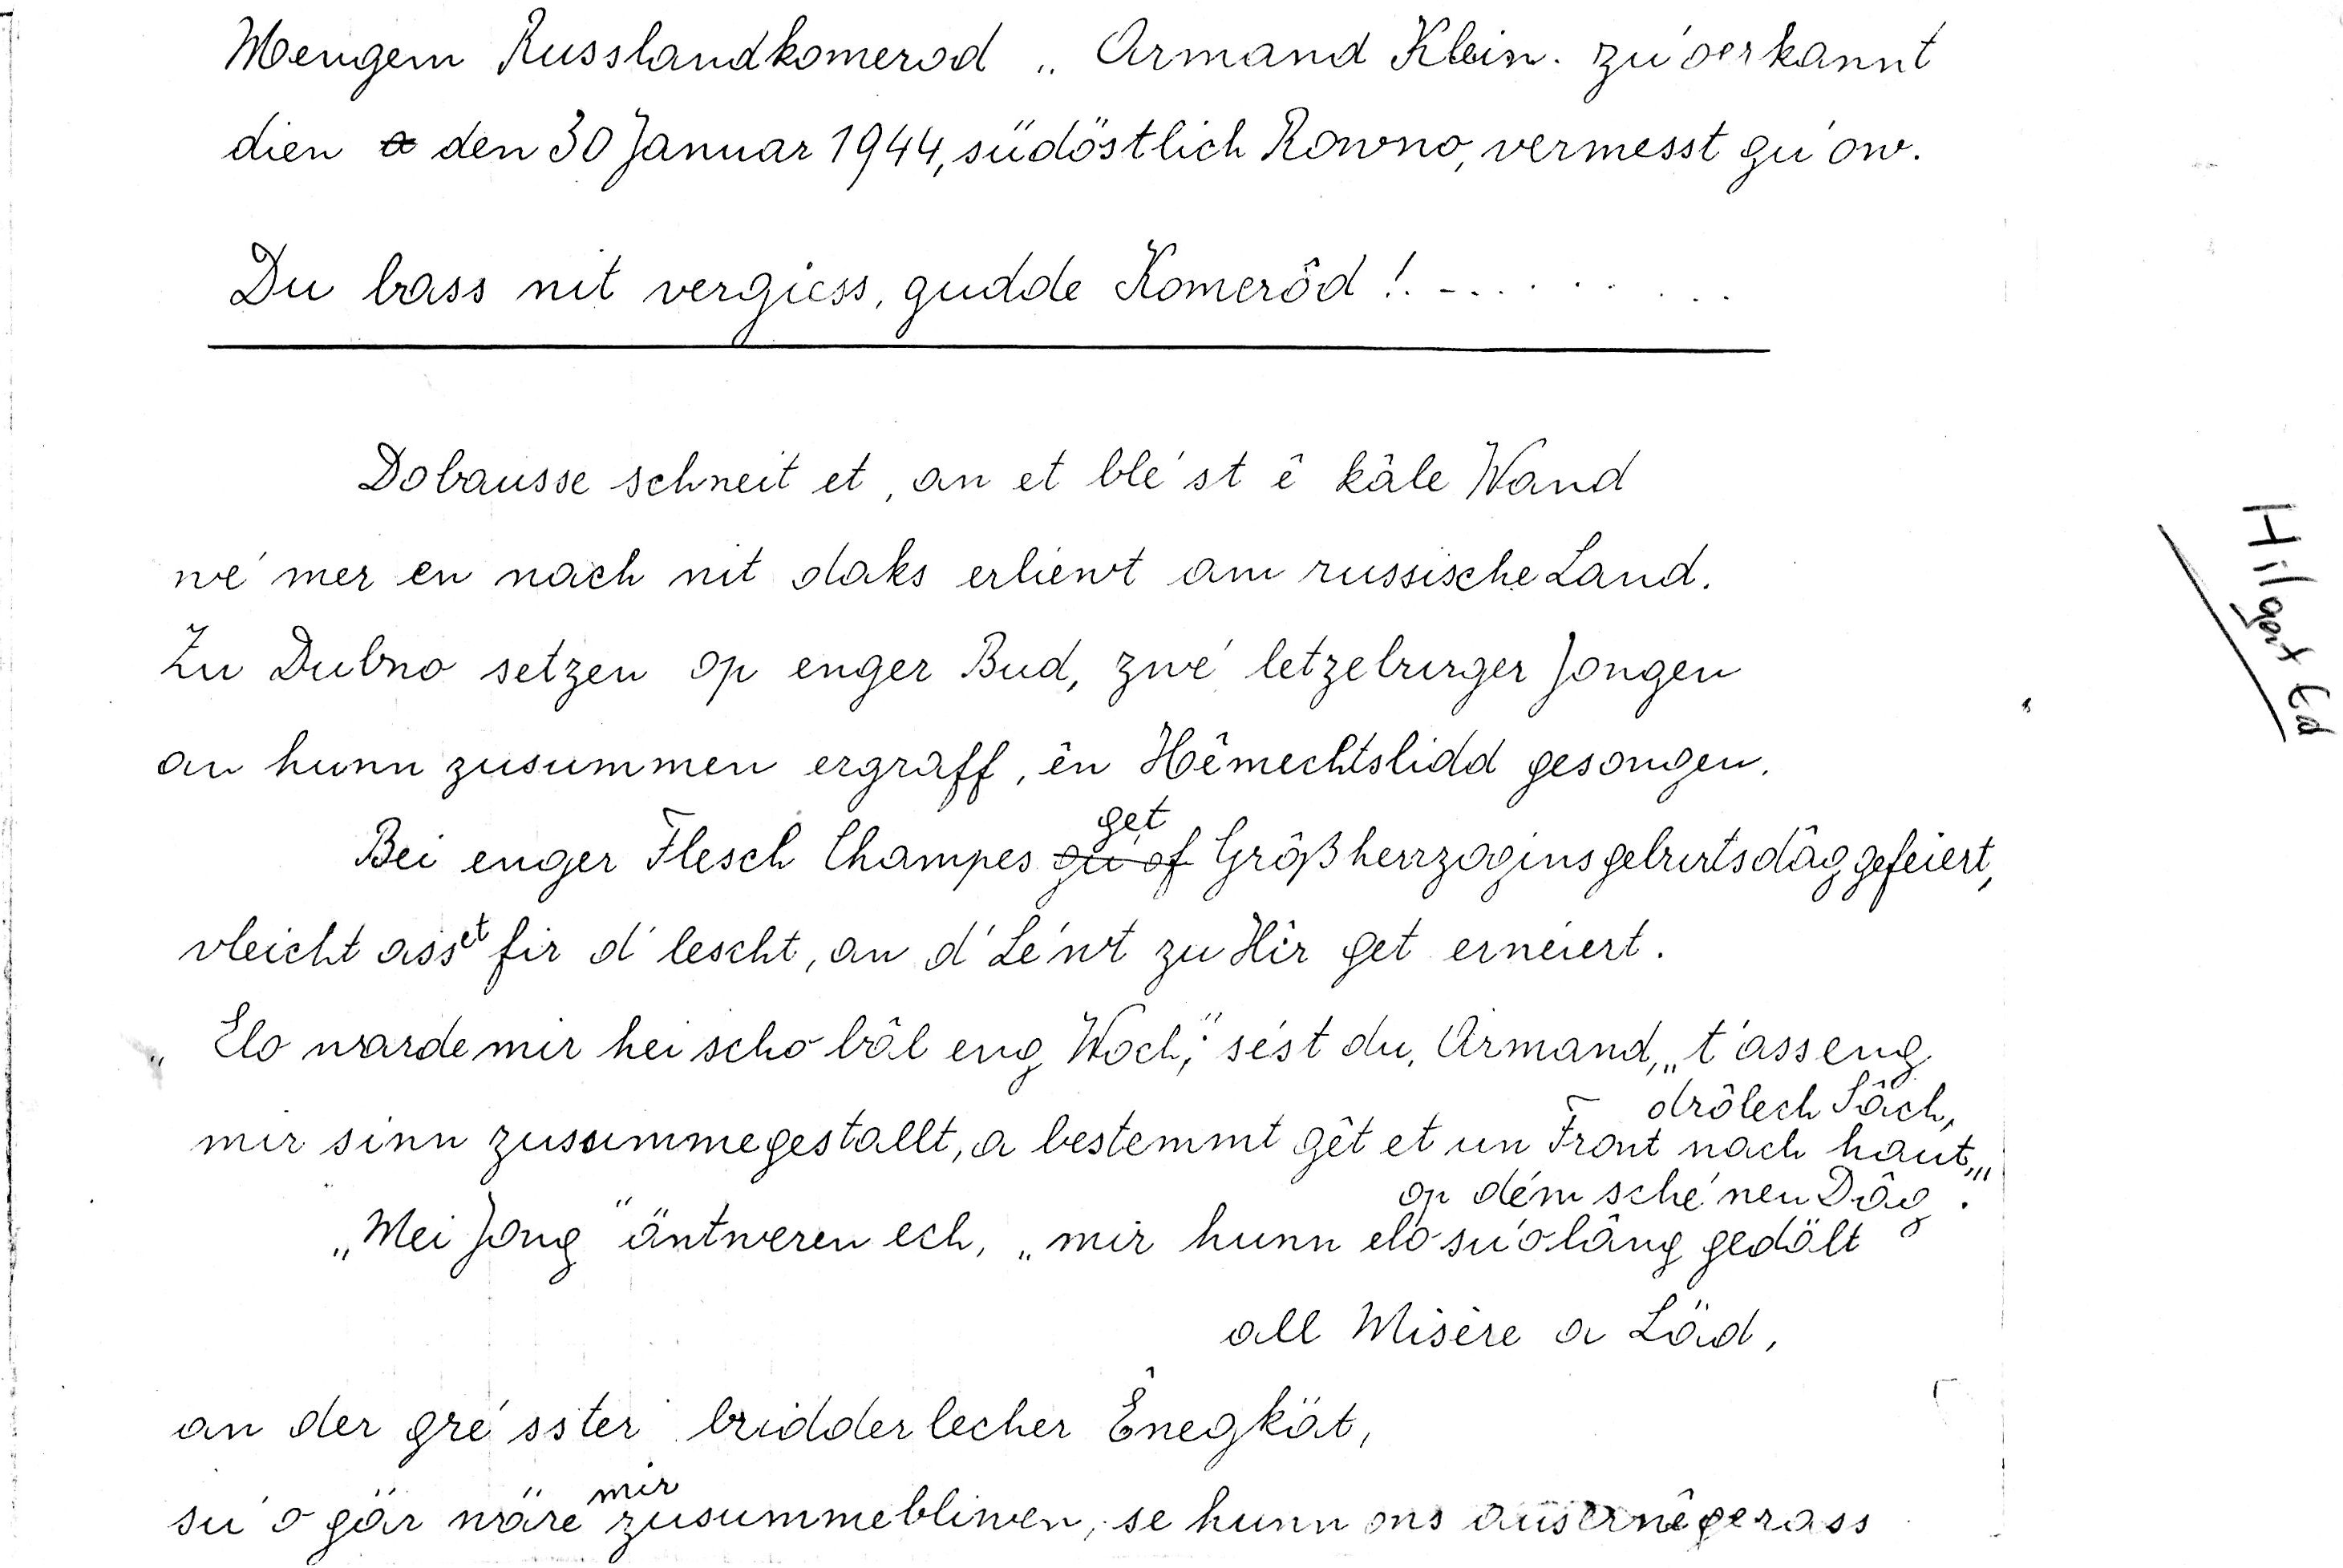 Mengem Russlandkomerod „ Armand Klein. zu'oerkannt
dien a den 30 Januar 1944, südöstlich Rowno, vermesst gu'ow.
Du bass nit vergiess, gudde Komerôd !. - . . . . . . . .
Dobausse schneit et, an et blé'st ê kâle Wand
wé mer en nach nit daks erliewt am russische Land.
Zu Dubno setzen op enger Bud, zwé letzeburger Jongen
an hunn zusummen ergraff, ên Hêmechtslidd gesongen.
get
Bei enger Flesch Champes gu'of Grôßherrzoginsgeburtsdâg gefeiert,
vleicht ass et fir d' lescht, an d' Lé'wt zu Hir get erneiert.
„ Elo warde mir hei scho bâl eng Woch," sést du, Armand, „t'ass eng
drôlech Sâch,
mir sinn zusummegestallt, a bestemmt gêt et un Front nach haut,„
op dém sché'nen Dâg."
„Mei Jong" äntweren ech, „mir hunn elo su'olâng gedölt
all Misère a Läd,
an der gré'sster bridderlecher Ênegkät,
mir
su'o gär wäre zusummebliwen, se hunn ons ausernêgerass
Hilgert Ed